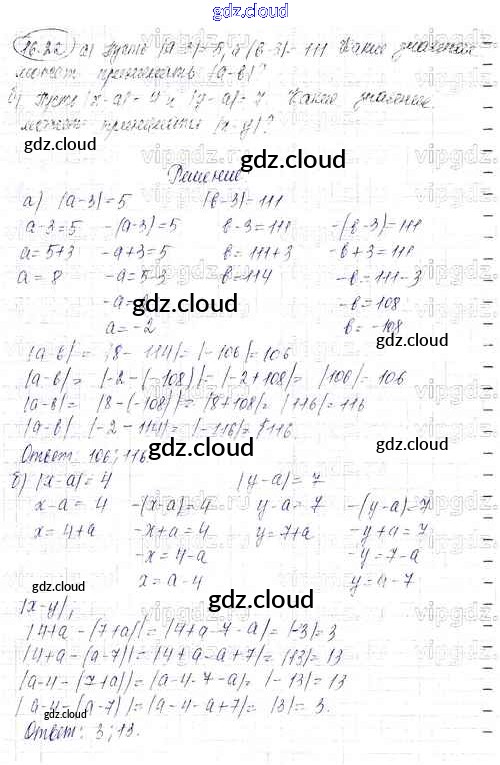 gdz.cloud
16.22) а) Пусть |а-3|=5, а |в-3|=111 Какие значения
может принимать |а-в|?
б) Пусть |x-а|=4 и |y-а|=7. Какие значения
может принимать |x-y|?
gdz.cloud gdz.cloud
Решение
gdz.cloud
а) |а-3|=5 |в-3|=111
а-3=5 -(а-3)=5 в-3=111 -(в-3)=111
а=5+3 -а+3=5 в=111+3 -в+3=111
а=8 -а=5-3 в=114 -в=111-3
-а=2 gdz.cloud -в=108
а=-2 в=-108
gdz.cloud
|а-в|= |8-114|=|-106|=106
|а-в|= |-2-(-108)|=|-2+108|= |106|=106
|а-в|= |8-(-108)|=|8+108|= |116|=116
|а-в| |-2-114|=|-116|=116.
Ответ: 106; 116 gdz.cloud gdz.cloud
б) |x-а|=4 |y-а|=7
x-а=4 -(x-а)=4 y-а=7 -(y-а)=7
x=4+а -x+а=4 y=7+а -y+а=7
-x=4-а -y=7-а
x=а-4 y=а-7
gdz.cloud gdz.cloud
|x-y|;
|4+а-(7+а)|=|4+а-7-а|=|-3|=3
|4+а-(а-7)|=|4+а-а+7|= |13|=13
|а-4-(7+а)|=|а-4-7-а|=|-13|=13
|а-4-(а-7)|=|а-4-а+7|= |3|= 3.
Ответ: 3; 13.
gdz.cloud gdz.cloud